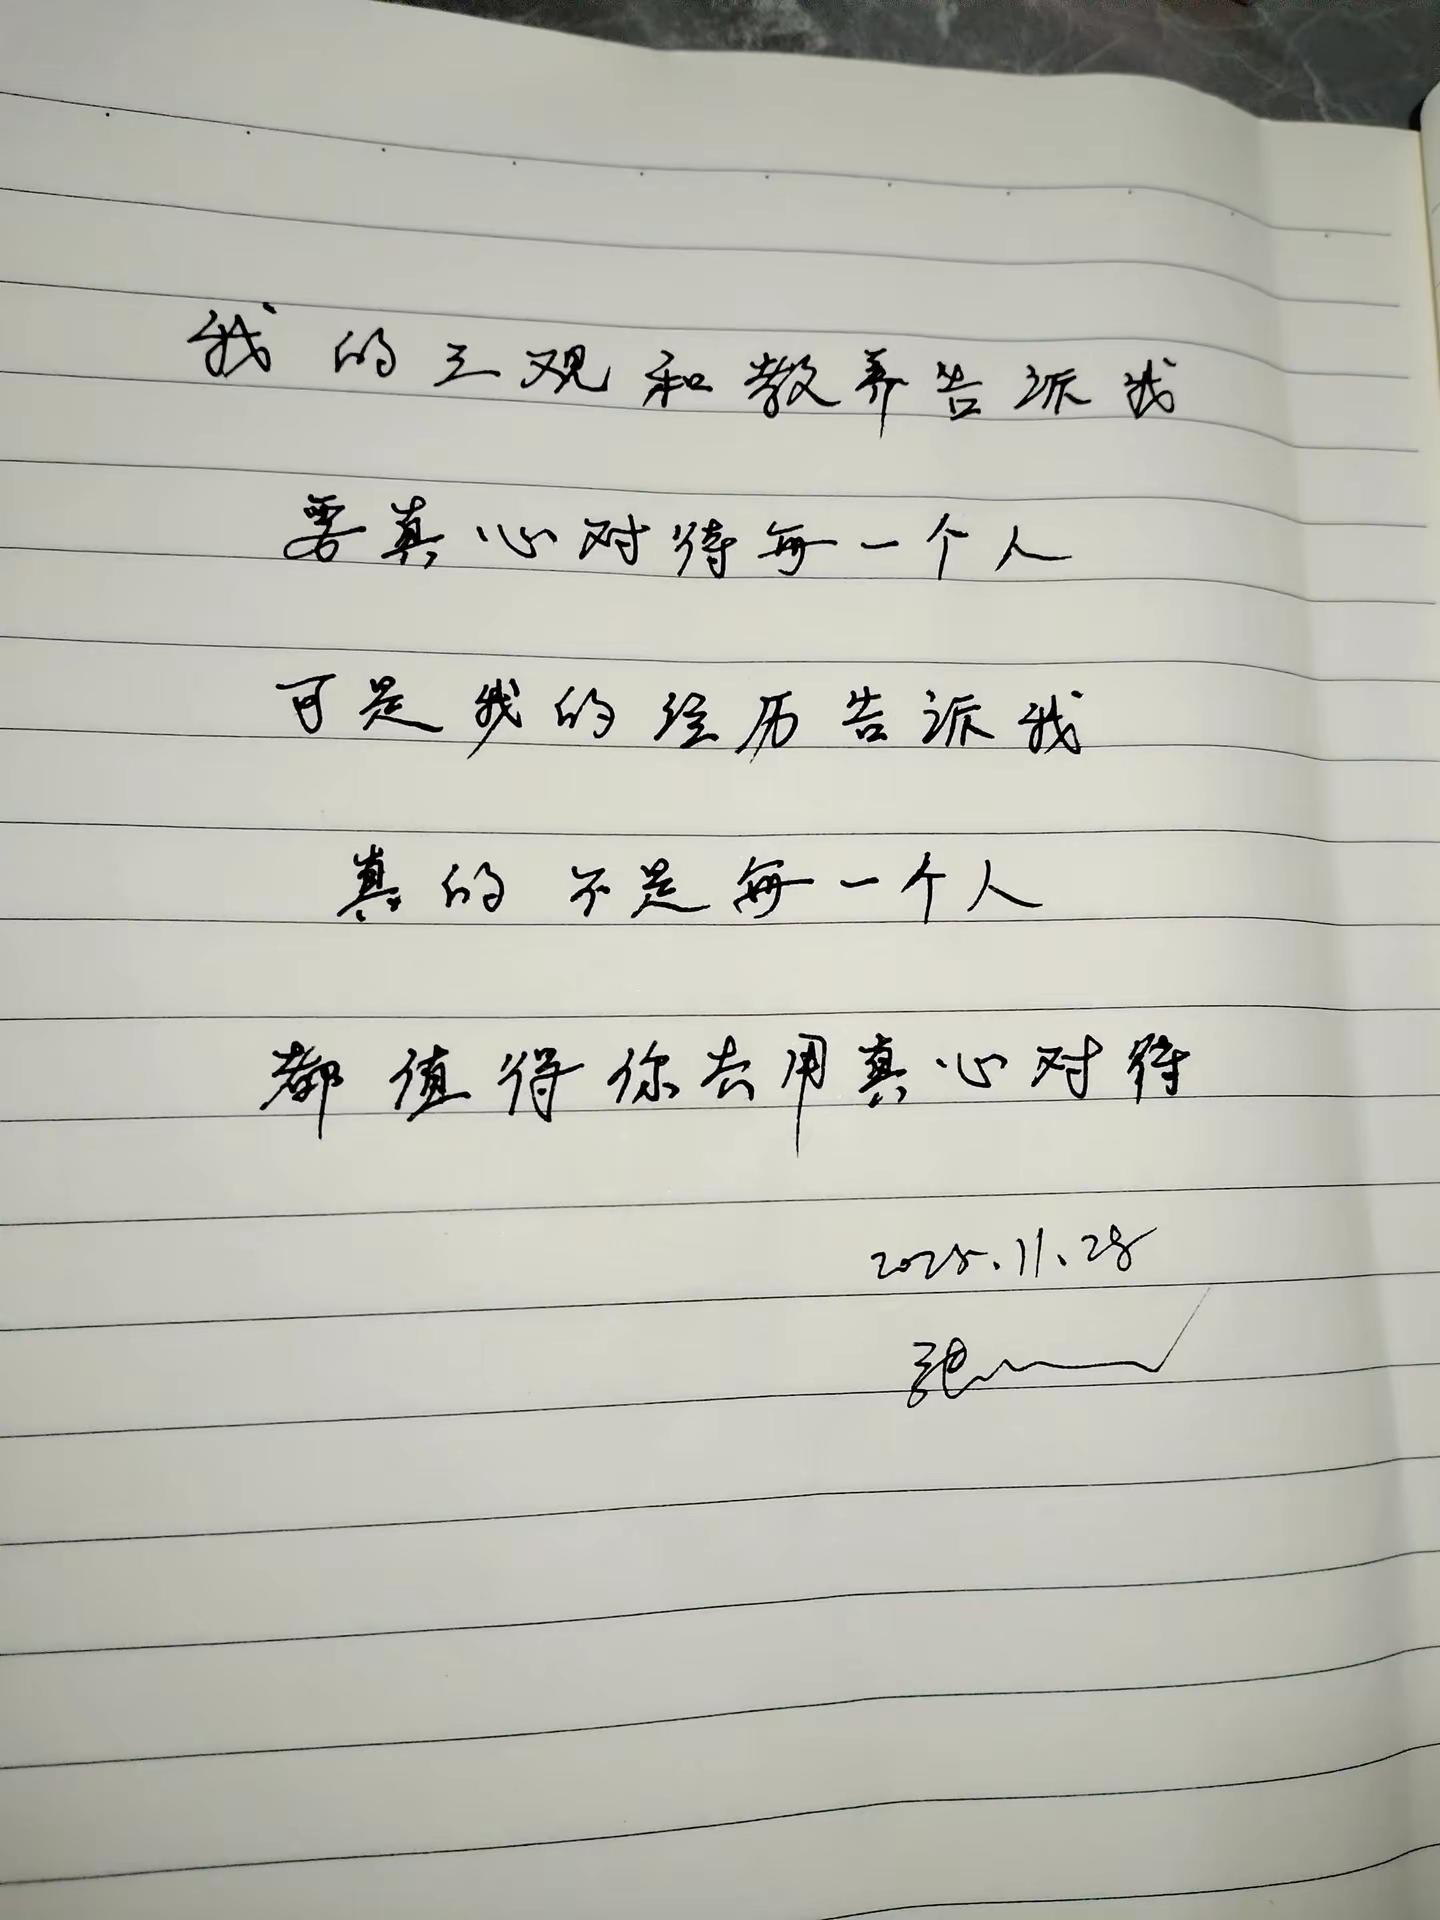 我的三观和教养告诉我
要真心对待每一个人
可是我的经历告诉我
真的不是每一个人
都值得你去用真心对待
2025.11.28